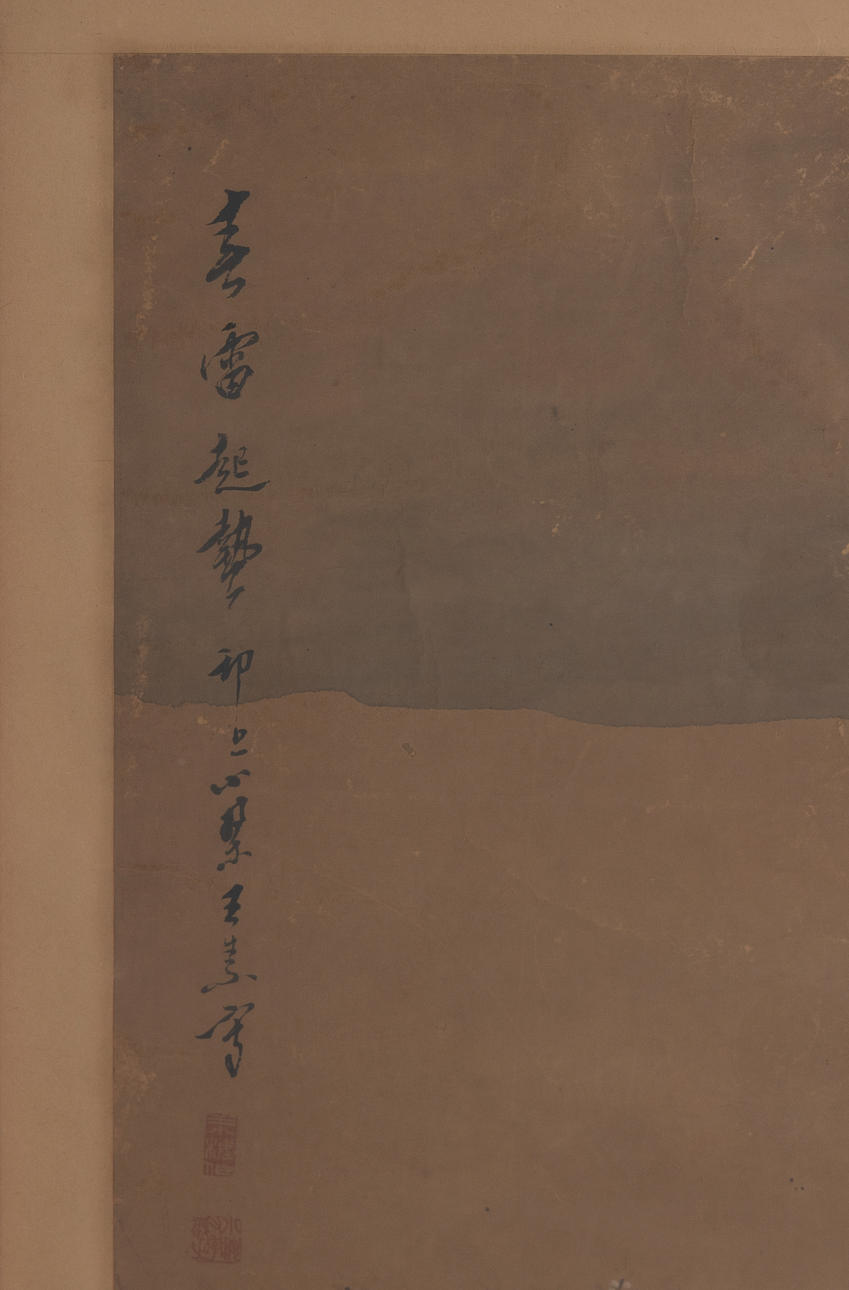 春雷起勢邗上小某王素寫